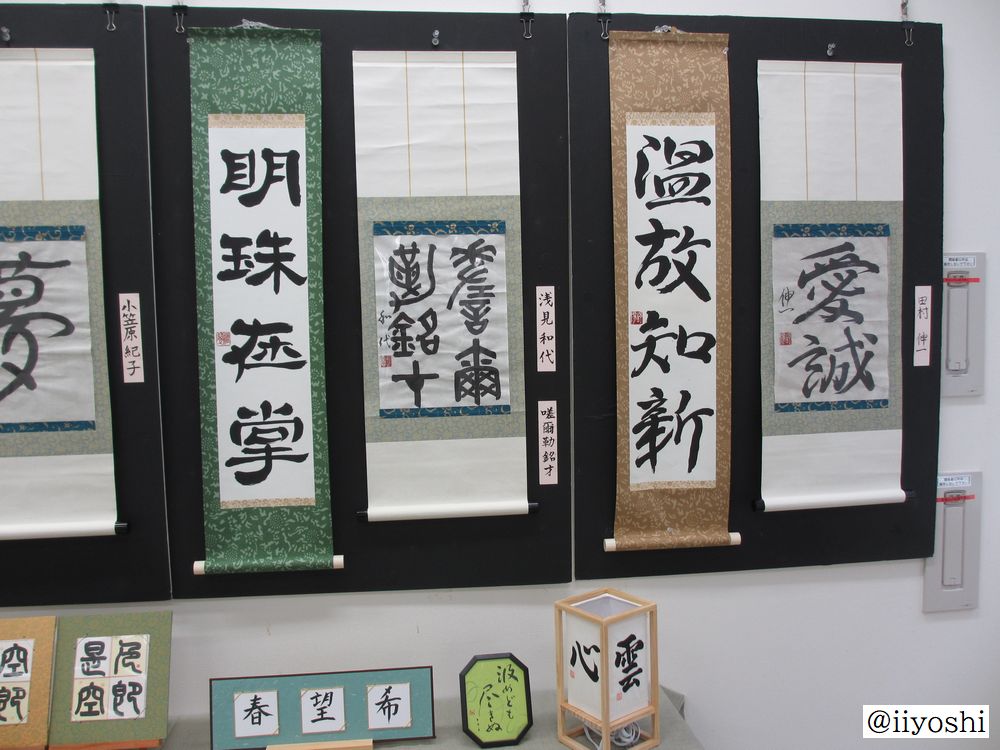 夢
小笠原 紀子
明珠在掌
嗟爾
勒銘才
和代
浅見 和代
嗟爾勒銘才
温故知新
愛誠
伸一
田村 伸一
空即
色即
是空
春
望
希
汲めども
尽きぬ
雲
心
@iiyoshi